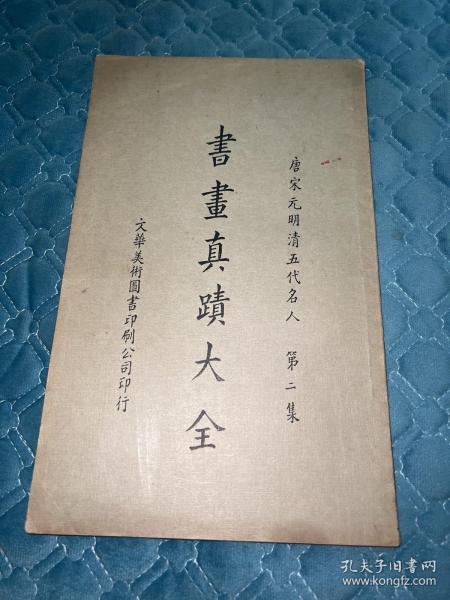 唐宋元明清五代名人 第二集
書畫真蹟大全
文華美術圖書印刷公司印行
孔夫子旧书网
www.kongfz.com